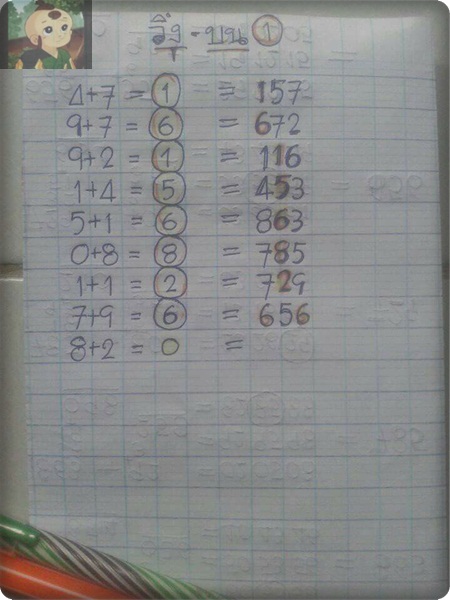 วิ่ง - บน 1
4+7 = 1 = 157
9+7 = 6 = 672
9+2 = 1 = 116
1+4 = 5 = 453
5+1 = 6 = 863
0+8 = 8 = 785
1+1 = 2 = 729
7+9 = 6 = 656
8+2 = 0 =